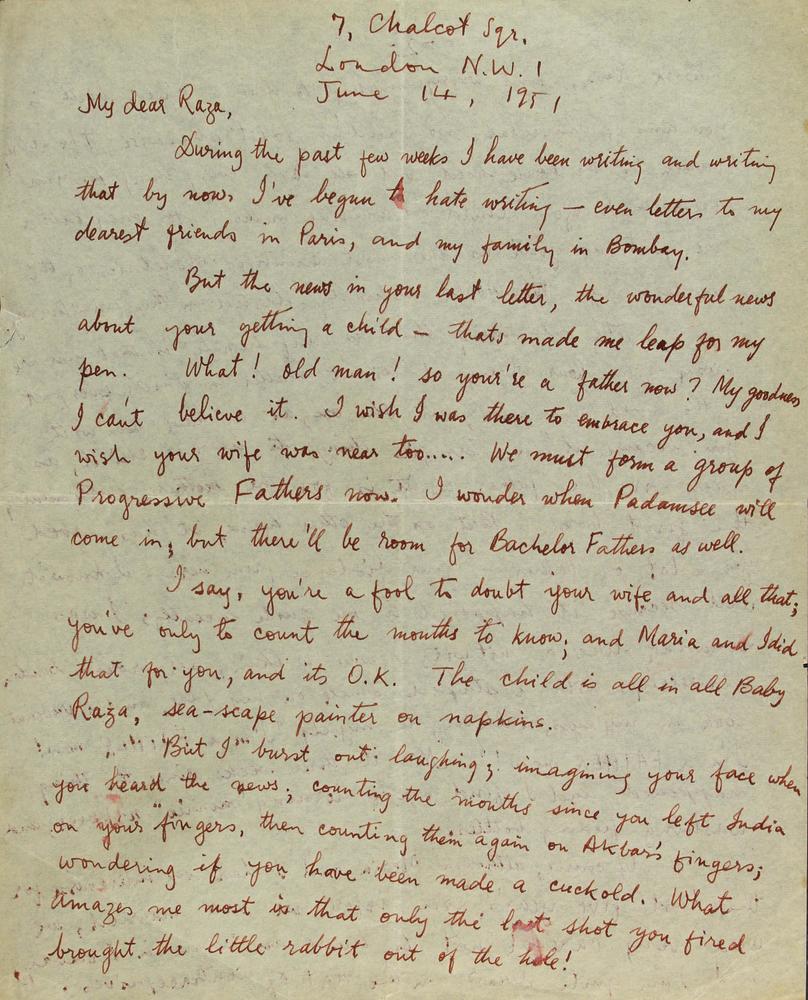 7, Chalcot Sqr.
London N.W. 1
June 14, 1951
My dear Raza,
During the past few weeks I have been writing and writing
that by now I've begun to hate writing — even letters to my
dearest friends in Paris, and my family in Bombay.
But the news in your last letter, the wonderful news
about your getting a child — thats made me leap for my
pen. What! old man! so you're a father now? My goodness
I can't believe it. I wish I was there to embrace you, and I
wish your wife was near too..... We must form a group of
Progressive Fathers now! I wonder when Padamsee will
come in; but there'll be room for Bachelor Fathers as well.
I say, you're a fool to doubt your wife and all that;
you've only to count the months to know; and Maria and I did
that for you, and its O.K. The child is all in all Baby
Raza, sea-scape painter on napkins.
But I burst out laughing; imagining your face when
you heard the news; counting the months since you left India
on your fingers, then counting them again on Akbar's fingers;
wondering if you have been made a cuckold. What
amazes me most is that only the last shot you fired
brought the little rabbit out of the hole!